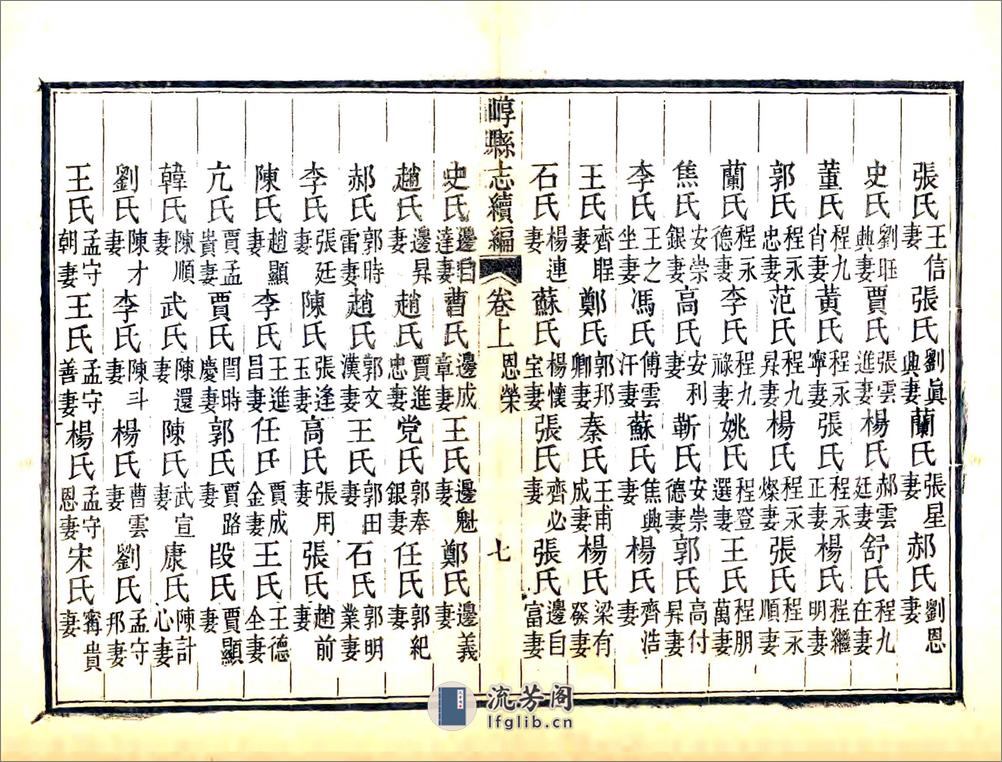 張氏王信妻張氏劉眞典妻蘭氏張星妻郝氏劉恩妻
史氏劉旺妻賈氏張雲進妻楊氏郝雲廷妻舒氏程九在妻
董氏程九肖妻黃氏程永寧妻張氏程永正妻楊氏程繼明妻
郭氏程永忠妻范氏程九昇妻楊氏程永燦妻張氏程永順妻
蘭氏程永德妻李氏程九祿妻姚氏程登選妻王氏程朋萬妻
焦氏安崇銀妻高氏安利妻靳氏安崇德妻郭氏高付昇妻
李氏王之坐妻馮氏傅雲汗妻蘇氏焦興妻楊氏齊浩妻
王氏齊睲妻鄭氏郭邦卿妻秦氏王甫成妻楊氏梁有癸妻
石氏楊連妻蘇氏楊懷宝妻張氏齊必妻張氏邊自富妻
崞縣志續編 卷上 恩榮 七
史氏邊自達妻曹氏邊成章妻王氏邊魁妻鄭氏邊義妻
趙氏邊昇妻趙氏賈進忠妻党氏郭奉銀妻任氏郭紀妻
郝氏郭時雷妻趙氏郭文漢妻王氏郭田妻石氏郭明業妻
李氏張廷妻陳氏張逢玉妻高氏張用妻張氏趙前妻
陳氏趙顯妻李氏王進昌妻任氏賈成金妻王氏王德仝妻
亢氏賈孟貴妻賈氏閆時慶妻郭氏賈路妻段氏賈顯妻
韓氏陳順妻武氏陳還妻陳氏武宣妻康氏陳計心妻
劉氏陳才妻李氏陳斗妻楊氏曹雲妻劉氏孟守邦妻
王氏孟守朝妻王氏孟守善妻楊氏孟守恩妻宋氏甯貴妻
流芳阁
lfglib.cn